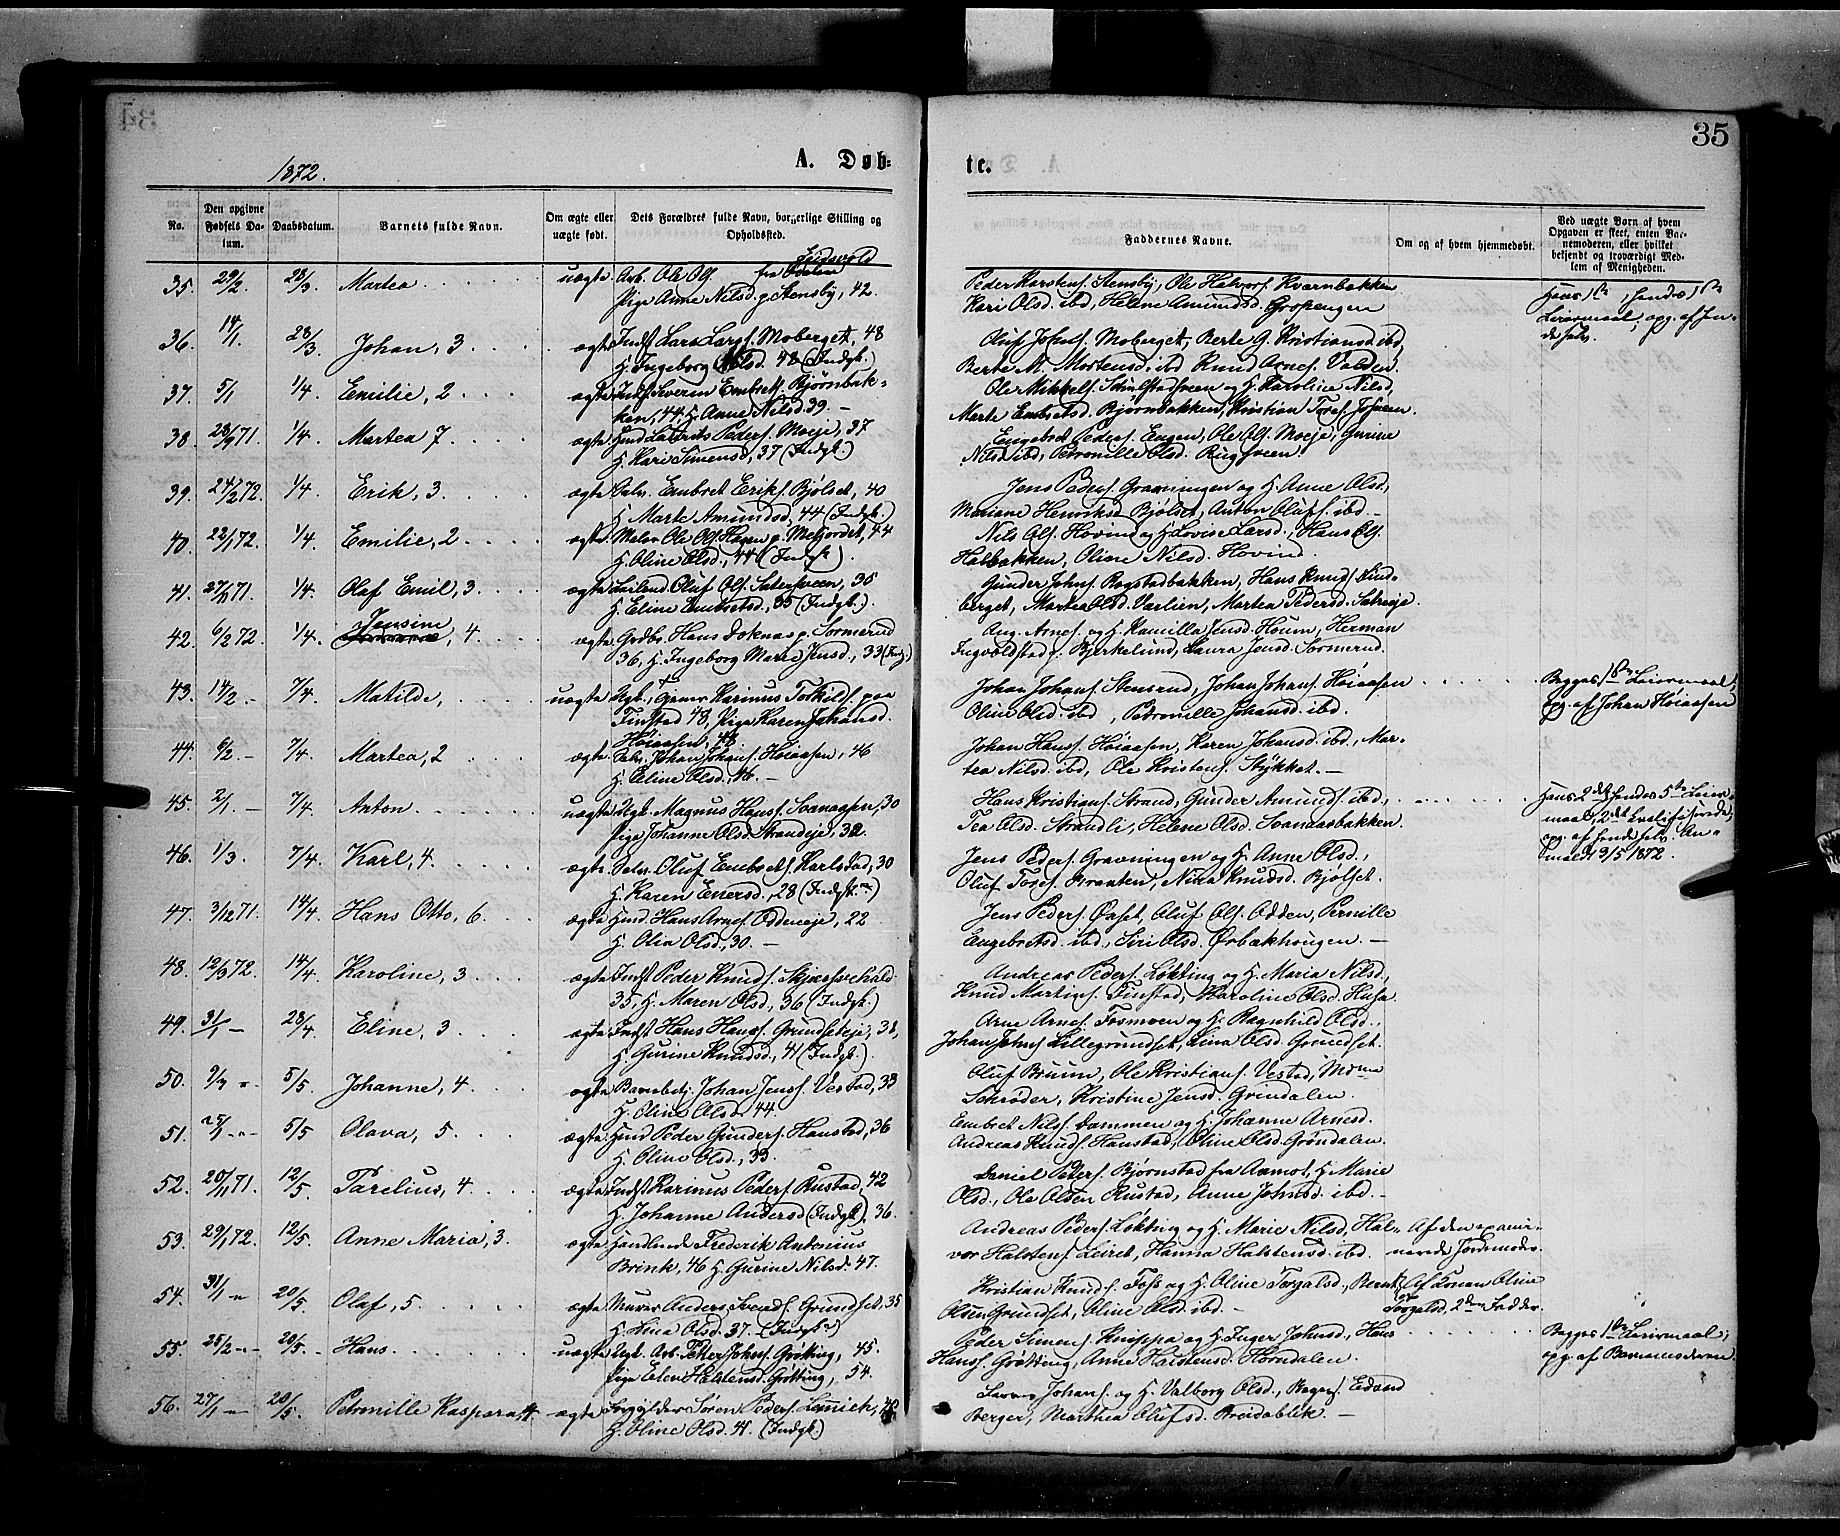 35
1872.
A. Døb-
te.
No.
Den opgivne Fødsels Da-tum.
Daabsdatum.
Barnets fulde Navn.
Om ægte eller uægte født.
Dets Forældres fulde Navn, borgerlige Stilling og Opholdssted.
Faddernes Navne.
Om og af hvem hjemmedøbt.
Ved uægte Børn af hvem Opgaven er skeet, enten Bar-nemoderen, eller hvilket bekjendt og troværdigt Med-lem af Menigheden.
35. 29/2 28/3 Martea uægte Arb. Ole Ols. fra Odalen Eidsvold
Pige Anne Nilsd. p. Stensby, 42.
Peder Karstens. Stensby, Ole Halvors. Kvernbakken
Kari Olsd. ibd, Helene Amundsd. Gropengen
Hans 1ste, hendes 1ste
Leiermaal, opg. af hen-
de selv.
36. 14/1 28/3 Johan, 3 ægte Inds. Lars Larss. Moberget, 48
H. Ingeborg Olsd. 48 (Indgk.)
Oluf Johs. Moberget, Berte G. Kristiansd. ibd,
Berte M. Mortensd. ibd Knud Arnes. Valden.
37. 5/1 1/4 Emilie, 2 ægte Inds. Iverin Embrets. Bjørnbak-
ken, 44 H. Anne Nilsd. 39. -
Ole Mikkels. Skulstadsveen og H. Karoline Nilsd,
Marte Embretsd. Bjørnbakken, Kristian Tores. Josveen.
38. 28/9 71. 1/4 Martea 7 ægte Hmd Laurits Peders. Moeje, 37
H. Kari Simensd, 37 (Indgk.)
Engebret Peders. Engen, Ole Ols. Moeje, Gurine
Nilsd ibd, Petronille Olsd. Rugsveen.
39. 24/2 72. 1/4 Erik, 3. ægte Selv. Embret Eriks. Bjølset, 40
H. Marte Amundsd, 44 (Indgk.)
Jens Peders. Gravningen og H. Anne Olsd,
Mariane Henriksd. Bjølset, Anton Olufs. ibd. -
40. 22/1 72. 1/4 Emilie, 2 ægte Maler Ole Ols. Hagen p. Mefjordet, 44
H. Oline Olsd, 44 (Indgk)
Nils Ols. Hovind og H. Lovise Larsd, Hans Ols.
Halbakken, Oline Nilsd. Hovind.
41. 27/11 71. 1/4. Olaf Emil, 3. ægte Leilend. Oluf Ols. Sætersveen, 35
H. Eline Embretsd, 35 (Indgk.)
Gunder Johns. Rogstadbakken, Hans Knuds. Lind-
berget, Martea Olsd. Varlien, Martea Pedersd. Sætreeje.
42. 6/2 72. 1/4. Jensine, 4. ægte Grdbr. Hans Doknæs p. Sørmerud
36, H. Ingeborg Marie Jensd., 33 (Indg.)
Aug. Arnes. og H. Kamilla Jensd. Houm, Herman
Ingvoldstad p. Bjerkelund, Laura Jensd. Sørmerud.
43. 14/2. - 7/4. Matilde, uægte Ugk., Gjæver Karinus Torkilds. paa
Finstad 48, Pige Karen Johansd.
Høiaasen, 48.
Johan Johans. Stensrud, Johan Johans. Høiaasen
Oline Olsd. ibd, Petronille Johansd. ibd.
Begges 1ste Leiermaal,
opg. af Johan Høiaasen
44. 6/2. - 7/4. Martea, 2 ægte Selv. Johan Johans. Høiaasen, 46
H. Eline Olsd., 46. -
Johan Hanss. Høiaasen, Karen Johansd. ibd., Mar-
tea Nilsd. ibd, Ole Kristens. Stykket. -
45. 2/1. - 7/4. Anton uægte Ugk. Magnus Hans. Svenaasen, 30
Pige Johanne Olsd. Strandeje, 32.
Hans Kristians. Strand, Gunder Amunds. ibd,
Tea Olsd. Strandli, Helene Olsd. Svenaasbakken.
Hans 2det hendes 5te Leier-
maal,
opg. af hende selv. An-
meldt 3/5 1872.
46. 1/3. 7/4. Karl, 4. ægte Selv. Oluf Embrets. Karlstad, 30
H. Karen Einersd, 28 (Indgk.)
Jens Peders. Gravningen og H. Anne Olsd.,
Oluf Tores. Braaten, Nina Knudsd. Bjølset.
47. 3/12 71. 14/4. Hans Otto, 6. ægte Hmd. Hans Arnes. Oddeneje, 22
H. Olia Olsd., 30. -
Jens Peders. Øaset, Oluf Ols. Odden, Pernille
Engebretsd. ibd, Siri Olsd. Ørbækhougen. -
48. 12/3 72. 14/4. Karoline, 3 ægte Inds. Peder Knuds. Skjærsvehald.
35, H. Maren Olsd., 36 (Indgk.)
Andreas Peders. Løkting og H. Maria Nilsd.,
Knud Martins. Finstad, Karoline Olsd. Husa
49. 31/1 - 28/4. Eline, 3 ægte Inds. Hans Hanss. Grundseteje, 38,
H. Gurine Knudsd., 41 (Indgk.).
Arne Arnes. Fosmoen og H. Ragnhild Olsd.,
Johan Johns. Lillegrundset, Lina Olsd. Grundset.
50. 9/3 - - 5/5. Johanne, 4. ægte Banebetj. Johan Jenss. Vestad, 33
H. Oline Olsd. 44.
Oluf Bruun, Ole Kristians. Vestad,
Schrøder, Kristine Jensd. Grindalen.
51. 25/1 - - 5/5 Olava, 5. ægte Hmd Peder Gunders. Hanstad, 36
H. Oline Olsd., 33.
Embret Nils. Dammen og H. Johanne Arnesd.
Andreas Knuds. Hanstad, Oline Olsd. Grøndalen.
52. 20/11 71. 12/5. Parelius, 4. ægte Inds. Karinus Peders. Rustad, 42
H. Johanne Andersd (Indgk), 36.
Daniel Petters. Bjørnstad fra Aamot, H. Marie
Olsd., Ole Olsen Rustad, Anne Johnsd. ibd. -
53. 29/1 72. 12/5. Anne Maria, 3. ægte Handlende Frederik Antonius
Brink, 46 H. Gurine Nilsd. 47.
Andreas Peders. Løkting og H. Marie Nilsd, Hal-
vor Halstens. Leiret, Hanna Halstensd. ibd.
Af den exami-
nerede Jordemoder.
54. 31/1 - - 20/5. Olaf, 5. ægte Murer Anders Svends. Grundset, 35
H. Lina Olsd. 37. (Indgk.)
Kristian Knuds. Foss og H. Oline Torgalsd., Bernt
Olsen Grundset, Oline Olsd. ibd. -
Af Konen Oline
Torgalsd, 2den Fadder.
55. 25/2 - - 20/5. - Hans uægte Ugk. Arb. Petter Johns. Grøtting, 45.
Pige Eline Halstensd. Grøtting, 54.
Peder Simens. Knippa og H. Inger Johnsd, Hans
Hanss. Grøtting, Anne Halstensd. Horndalen.
Begges 1ste Leiermaal,
opg. af Barnemoderen.
56. 27/1 - 20/5. Petronille Kaspara, 4. ægte Forgylder Søren Peders. Lemick,
H. Oline Olsd. 41. (Indgk.)
Johans. og H. Valborg Olsd., Edvard
Berger, Marthea Olufsd. Breidablik. -